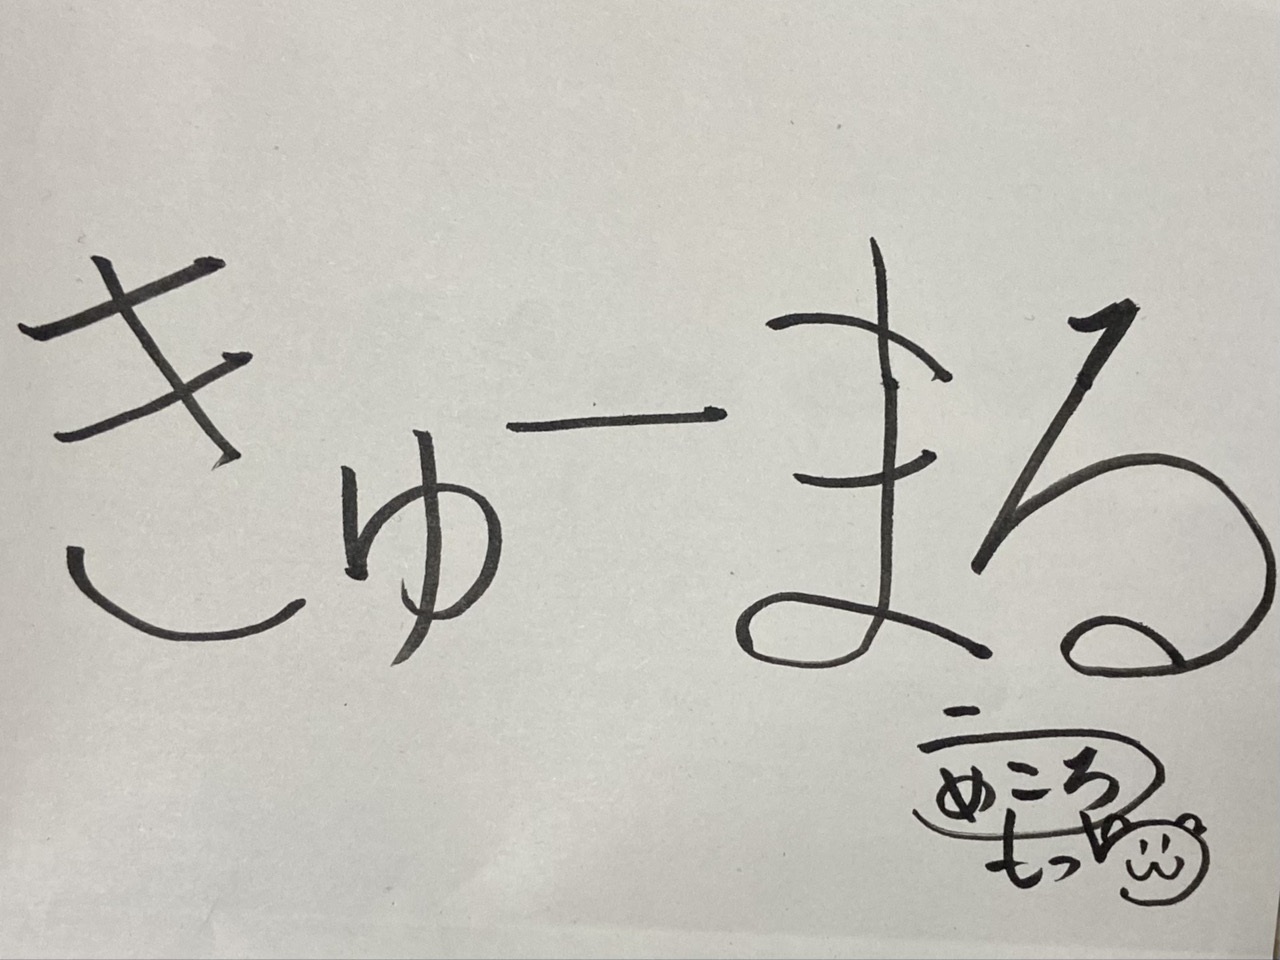 きゅーまる
うめころ
もっ